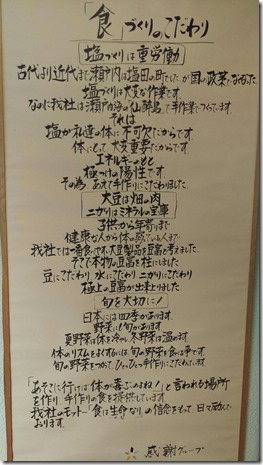 「食」づくりのこだわり
塩づくりは重労働
古代より近代まで瀬戸内は塩田の町でしたが国の政策でなくなった
塩づくりは大変な作業です
なのに我社は瀬戸内海の仙酔島で手作業でつくっています。
それは
塩が私達の体に不可欠だからです
体にとって大変重要だからです
エネルギーのもと
極っけの陽性です
その為あえて手作りにこだわりました。
大豆は畑の肉
ニガリはミネラルの宝庫
子供から年寄まで
健康な人から体の弱っている人まで
我社では一番食べやすい大豆製品を豆腐と考えました。
そして本物の豆腐を柱にしました
豆にこだわり、水にこだわり ニガリにこだわり
極上の豆腐が出来上りました
旬を大切に!
日本には四季があります。
野菜にも旬があります
夏野菜は体を冷やし冬野菜は温めます
体のリズムをよくするには、旬の野菜を食べる事です。
旬の野菜をつかって 1つ1つ手作りにこだわりました。
「あそこに行けば体が喜ぶのよね!」と言われる場所
を作り 手作りの食を提供していきます
我社のモットー「食は生命なり」の信念をもって日々励んで
おります。
感謝グループ